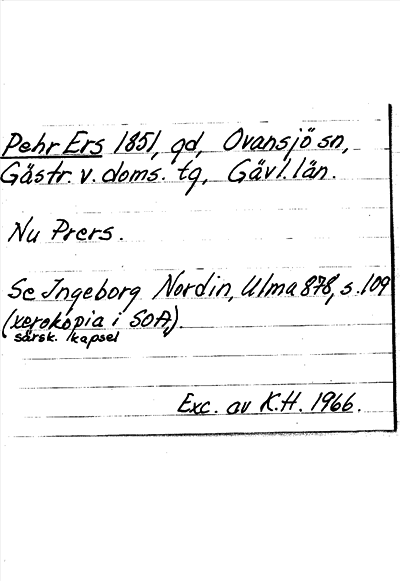 Pehr Ers 1851, gd, Ovansjö sn,
Gästr. v. doms. tg, Gävl. län.
Nu Prers.
Se Ingeborg Nordin, Ulma 878, s. 109
(xerokopia i SOA,).
särsk. kapsel
Exc. av K.H. 1966.